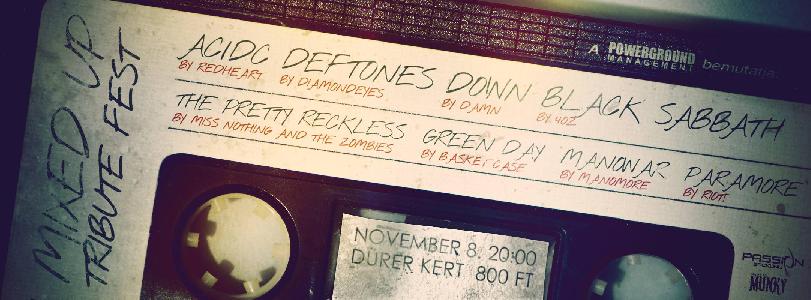 MIXED UP
TRIBUTE FEST
A POWERGROUND MANAGEMENT bemutatja:
ACIDC DEFTONES DOWN BLACK SABBATH
BY REDHEART BY DIAMONDEYES BY DAMN BY 4OZ
THE PRETTY RECKLESS GREEN DAY MANOWAR PARAMORE
BY MISS NOTHING AND THE ZOMBIES BY BASKET CASE BY MANOMORE BY RIOT!
NOVEMBER 8. 20:00
DÜRER KERT 800 FT
PASSION
MUNKY